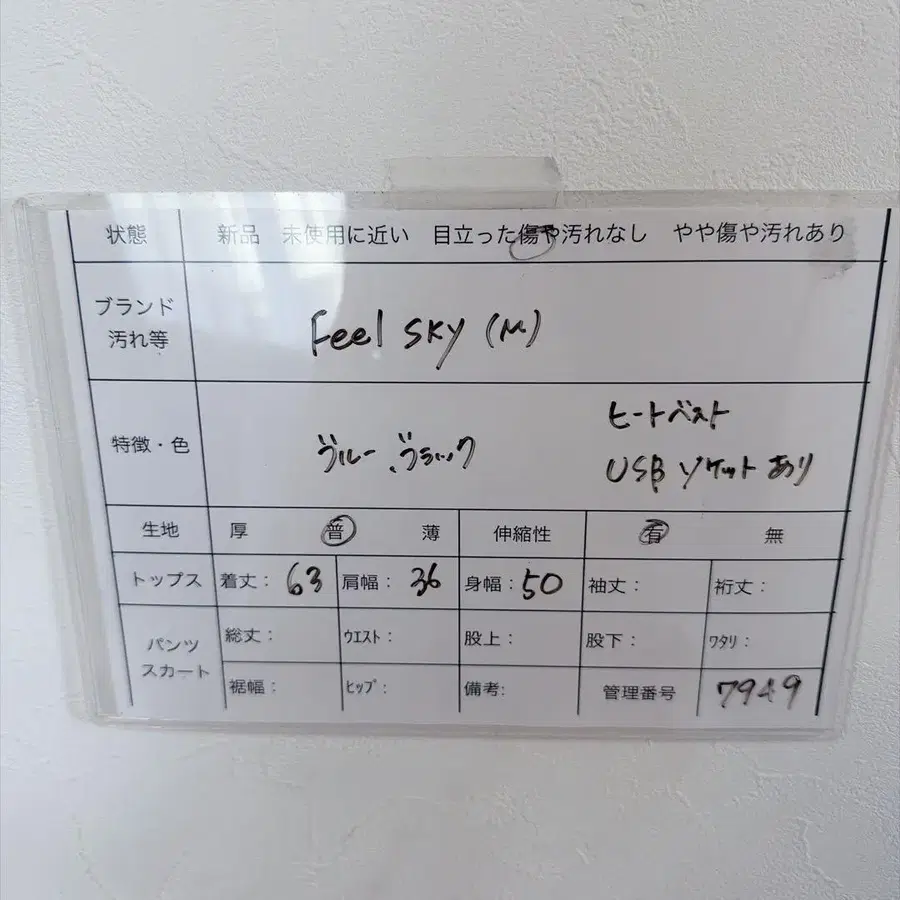 状態 新品 未使用に近い 目立った傷や汚れなし やや傷や汚れあり
ブランド
汚れ等
Feel SKY (M)
特徴・色 ブルー、ブラック
ヒートベスト
USB ソケット あり
生地 厚 普 薄 伸縮性 有 無
トップス 着丈: 63 肩幅: 36 身幅: 50 袖丈: 裄丈:
パンツ
スカート
総丈: ウエスト: 股上: 股下: ワタリ:
裾幅: ヒップ: 備考: 管理番号 7949